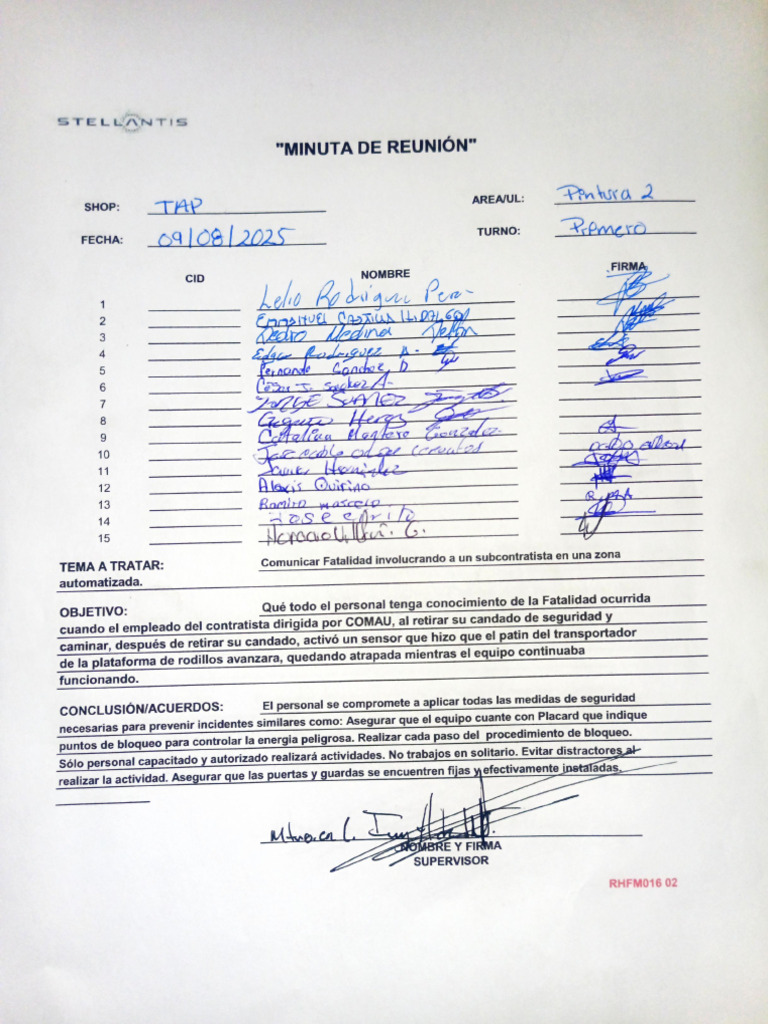 STELLANTIS
"MINUTA DE REUNIÓN"
SHOP: TAP AREA/UL: Pintura 2
FECHA: 09/08/2025 TURNO: Primero
CID NOMBRE FIRMA
1 Lelio Rodriguez
2 EMMANUEL CASTILLA HIDALGO
3 Pedro Medina
4 Edgar Rodriguez A.
5 Fernando Sanchez D
6 César J. Sanchez A.
7 JORGE SUAREZ
8
9 Catalina Gonzalez
10 cervantes
11 Javier Hernandez
12 Alexis Quirino
13 Ramiro
14 Jose
15 Horacio
TEMA A TRATAR: Comunicar Fatalidad involucrando a un subcontratista en una zona
automatizada.
OBJETIVO: Qué todo el personal tenga conocimiento de la Fatalidad ocurrida
cuando el empleado del contratista dirigida por COMAU, al retirar su candado de seguridad y
caminar, después de retirar su candado, activó un sensor que hizo que el patin del transportador
de la plataforma de rodillos avanzara, quedando atrapada mientras el equipo continuaba
funcionando.
CONCLUSIÓN/ACUERDOS: El personal se compromete a aplicar todas las medidas de seguridad
necesarias para prevenir incidentes similares como: Asegurar que el equipo cuante con Placard que indique
puntos de bloqueo para controlar la energia peligrosa. Realizar cada paso del procedimiento de bloqueo.
Sólo personal capacitado y autorizado realizará actividades. No trabajos en solitario. Evitar distractores al
realizar la actividad. Asegurar que las puertas y guardas se encuentren fijas y efectivamente instaladas.
NOMBRE Y FIRMA
SUPERVISOR
RHFM016 02